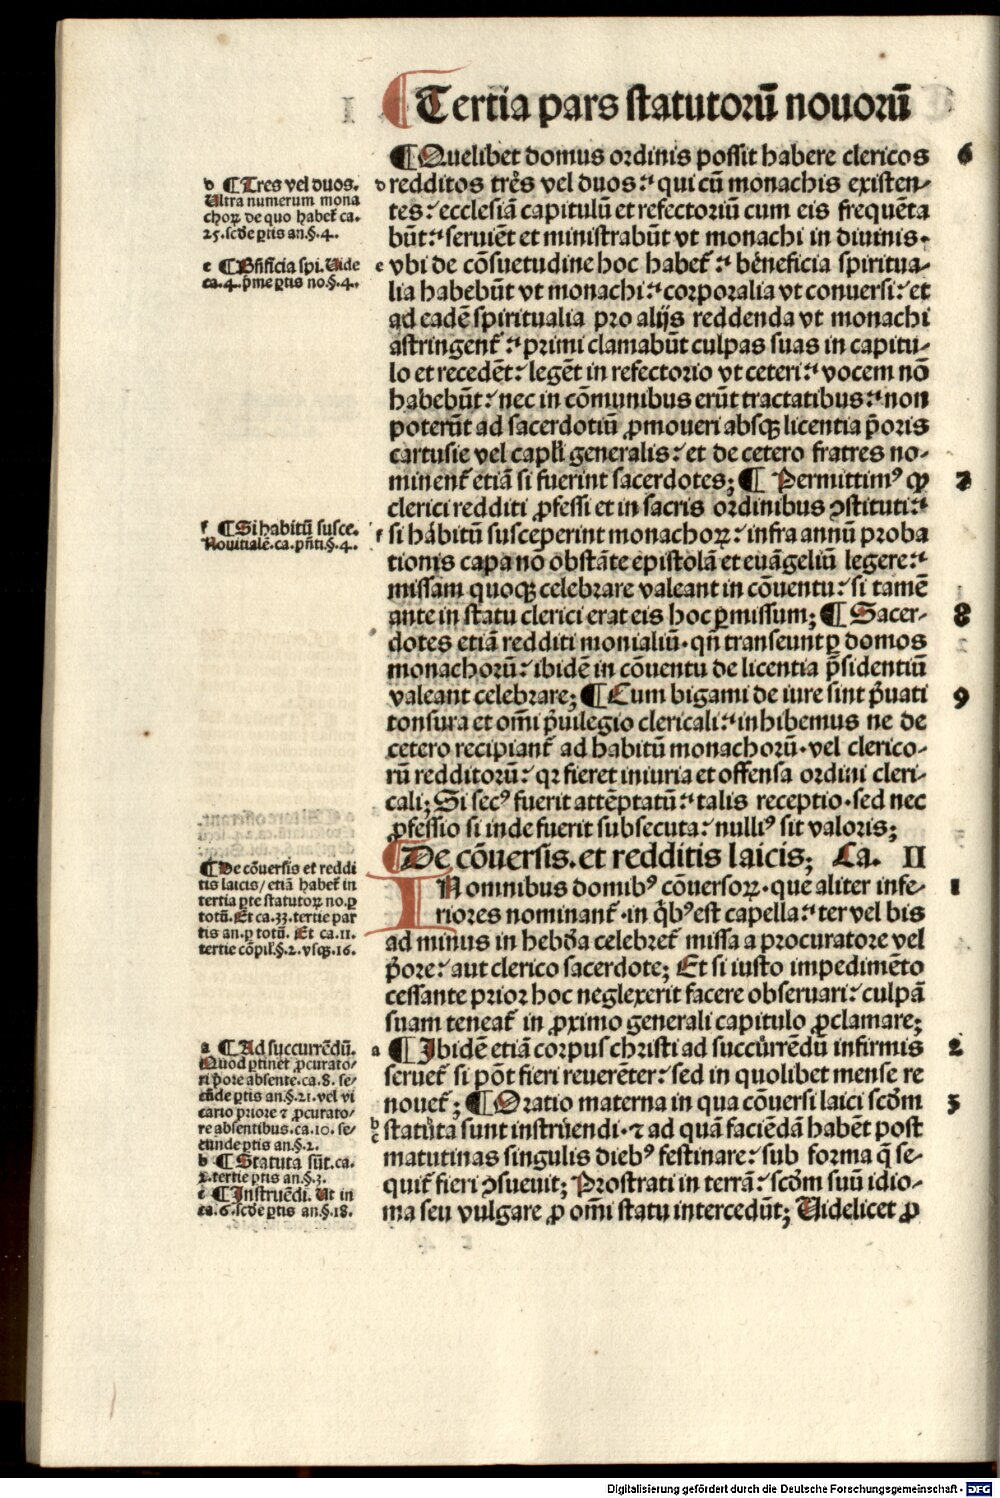 ¶Tertia pars statutorū nouorū
¶Quelibet domus ordinis possit habere clericos 6
redditos tres vel duos: qui cū monachis existen-
tes: ecclesiā capitulū et refectoriū cum eis frequēta
būt: seruiēt et ministrabūt vt monachi in diuinis.
vbi de cōsuetudine hoc habet᷑: beneficia spiritua-
lia habebūt vt monachi: corporalia vt conuersi: et
ad eadē spiritualia pro alijs reddenda vt monachi
astringent᷑: primi clamabūt culpas suas in capitu-
lo et recedēt: legēt in refectorio vt ceteri: vocem nō
habebūt: nec in cōmunibus erūt tractatibus: non
poterūt ad sacerdotiū ꝓmoueri absqꝫ licentia p̄oris
cartusie vel capl'i generalis: et de cetero fratres no-
minent᷑ etiā si fuerint sacerdotes; ¶ Permittimꝰ ꝙ 7
clerici redditi ꝓfessi et in sacris ordinibus ꝯstituti:
si habitū susceperint monachoꝝ: infra annū proba
tionis capa nō obstāte epistolā et euāgeliū legere:
missam quoqꝫ celebrare valeant in cōuentu: si tamē
ante in statu clerici erat eis hoc ꝑmissum; ¶Sacer- 8
dotes etiā redditi monialiū. qn̄ transeunt ꝑ domos
monachorū: ibidē in cōuentu de licentia p̄sidentiū
valeant celebrare; ¶Cum bigami de iure sint p̄uati 9
tonsura et om̄i p̄uilegio clericali: inhibemus ne de
cetero recipiant᷑ ad habitū monachorū. vel clerico-
rū redditorū: qꝛ fieret iniuria et offensa ordini cleri-
cali; Si secꝰ fuerit attēptatū: talis receptio. sed nec
ꝓfessio si inde fuerit subsecuta: nulliꝰ sit valoris;
¶De cōuersis. et redditis laicis; Ca. II
IN omnibus domibꝰ cōuersoꝝ. que aliter infe- 1
riores nominant᷑. in q̄bꝰ est capella: ter vel bis
ad minus in hebd̄a celebret᷑ missa a procuratore vel
p̄ore: aut clerico sacerdote; Et si iusto impedimēto
cessante prior hoc neglexerit facere obseruari: culpā
suam teneat᷑ in ꝓximo generali capitulo ꝓclamare;
¶Ibidē etiā corpus christi ad succurrēdū infirmis 2
seruet᷑ si pōt fieri reuerēter: sed in quolibet mense re
nouet᷑; ¶Oratio materna in qua cōuersi laici scd̄m 3
statuta sunt instruendi. ⁊ ad quā faciēdā habēt post
matutinas singulis diebꝰ festinare: sub forma q̄ se-
quit᷑ fieri ꝯsueuit; Prostrati in terrā: scd̄m suū idio-
ma seu vulgare ꝓ om̄i statu intercedūt; Uidelicet ꝓ
d ¶Tres vel duos.
Ultra numerum mona
choꝝ de quo habet᷑ ca.
25. scd̄e ꝑtis an. §. 4.
e ¶Bn̄ficia spi. Uide
ca. 4. p̄me ꝑtis no. §. 4.
f ¶Si habitū susce.
Nouitialē. ca. pn̄ti. §. 4.
¶De cōuersis et reddi
tis laicis/ etiā habet᷑ in
tertia ꝑte statutoꝝ no. ꝑ
totū. Et ca. 33. tertie par
tis an. ꝑ totū. Et ca. 11.
tertie cōpil'. §. 2. vsqꝫ. 16.
a ¶Ad succurrēdū.
Quod ꝑtinet ꝓcurato-
ri p̄ore absente. ca. 8. se-
cūde ꝑtis an. §. 21. vel vi
cario priore ⁊ ꝓcurato-
re absentibus. ca. 10. se-
cunde ꝑtis an. §. 2.
b ¶Statuta sūt. ca.
2. tertie ptis an. §. 3.
c ¶Instruēdi. Ut in
ca. 6. scd̄e ꝑtis an. §. 18.
Digitalisierung gefördert durch die Deutsche Forschungsgemeinschaft - DFG